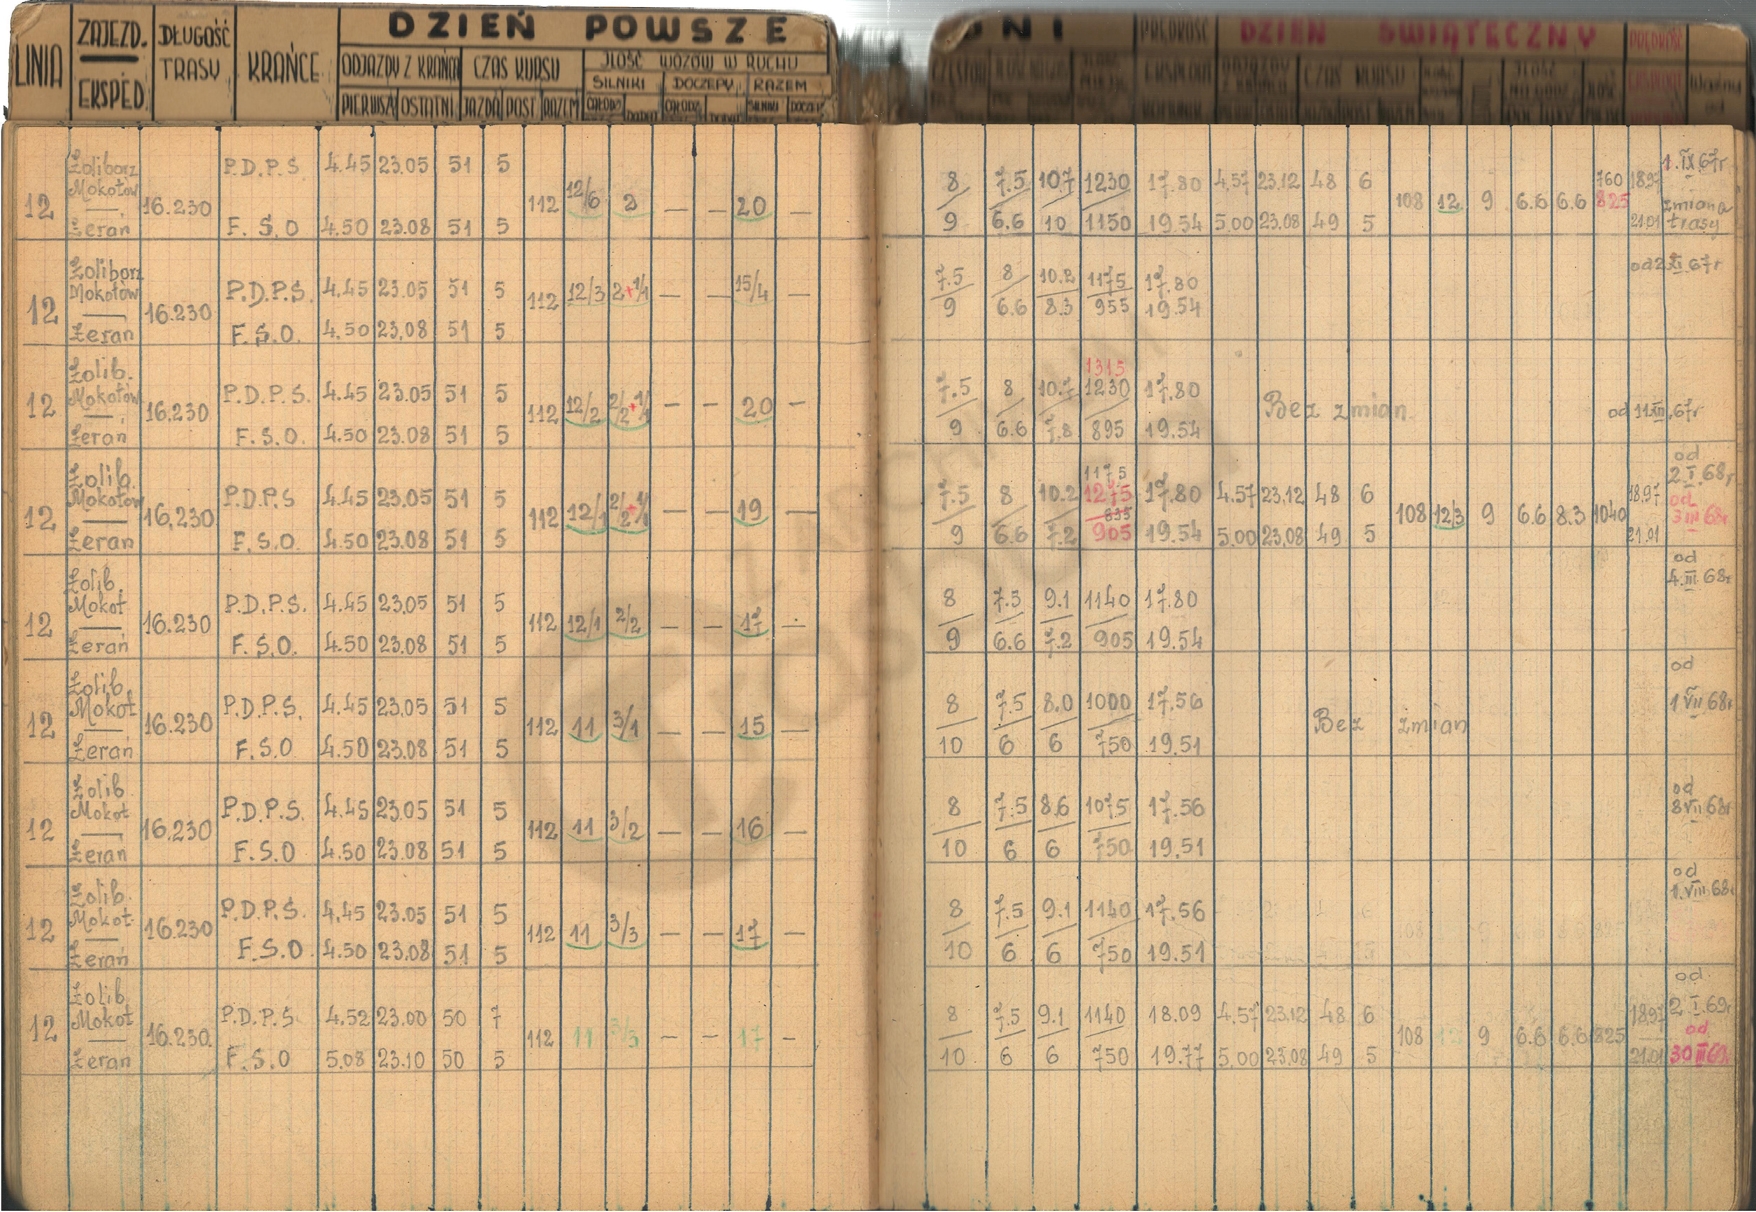 LINIA ZAJEZD. EKSPED. DŁUGOŚĆ TRASY KRAŃCE DZIEŃ POWSZE DNI PRĘDKOŚĆ DZIEŃ ŚWIĄTECZNY PRĘDKOŚĆ
ODJAZDY Z KRAŃCA CZAS KURSU ILOŚĆ WOZÓW W RUCHU
SILNIKI DOCZEPY RAZEM
PIERWSZY OSTATNI JAZDA POST. RAZEM
Żoliborz P.D.P.S. 4.45 23.05 51 5 8 7.5 10.7 1230 17.80 4.57 23.12 48 6 760 18.97 1.IX 67r
12 Mokotów 16.230 112 12/6 2 — — 20 — 108 12 9 6.6 6.6 825 zmiana
Żerań F.S.O 4.50 23.08 51 5 9 6.6 10 1150 19.54 5.00 23.08 49 5 21.01 trasy
Żoliborz P.D.P.S. 4.45 23.05 51 5 7.5 8 10.2 1175 17.80 od 2 XI 67r
12 Mokotów 16.230 112 12/3 2+1/1 — — 15/4 —
Żerań F.S.O. 4.50 23.08 51 5 9 6.6 8.3 955 19.54
1315
Żolib. P.D.P.S. 4.45 23.05 51 5 7.5 8 10.7 1230 17.80
12 Mokotów 16.230 112 12/2 2/2+1/1 — — 20 — Bez zmian od 11.XII.67r
Żerań F.S.O. 4.50 23.08 51 5 9 6.6 7.8 895 19.54
1175 od 2 I 68r
Żolib. P.D.P.S 4.45 23.05 51 5 7.5 8 10.2 1275 17.80 4.57 23.12 48 6 18.97 od
12 Mokotów 16.230 112 12/1 2/2+1/1 — — 19 — 835 108 12/3 9 6.6 8.3 1040 3 III 68r
Żerań F.S.O. 4.50 23.08 51 5 9 6.6 7.2 905 19.54 5.00 23.08 49 5 21.01
od
Żolib. P.D.P.S. 4.45 23.05 51 5 8 7.5 9.1 1140 17.80 4.III 68r
12 Mokot 16.230 112 12/1 2/2 — — 17 —
Żerań F.S.O. 4.50 23.08 51 5 9 6.6 7.2 905 19.54
od
Żolib. P.D.P.S. 4.45 23.05 51 5 8 7.5 8.0 1000 17.56 1 VII 68r
12 Mokot 16.230 112 11 3/1 — — 15 — Bez zmian
Żerań F.S.O 4.50 23.08 51 5 10 6 6 750 19.51
od
Żolib. P.D.P.S. 4.45 23.05 51 5 8 7.5 8.6 1075 17.56 8 VII 68r
12 Mokot 16.230 112 11 3/2 — — 16 —
Żerań F.S.O 4.50 23.08 51 5 10 6 6 750 19.51
od
Żolib. P.D.P.S. 4.45 23.05 51 5 8 7.5 9.1 1140 17.56 1.VIII 68r
12 Mokot. 16.230 112 11 3/3 — — 17 —
Żerań F.S.O 4.50 23.08 51 5 10 6 6 750 19.51
od
Żolib. P.D.P.S 4.52 23.00 50 7 8 7.5 9.1 1140 18.09 4.57 23.12 48 6 18.97 2 I 69r
12 Mokot 16.230. 112 11 3/3 — — 17 — 108 12 9 6.6 6.6 825 od
Żerań F.S.O 5.08 23.10 50 5 10 6 6 750 19.77 5.00 23.08 49 5 21.01 30 III 69r